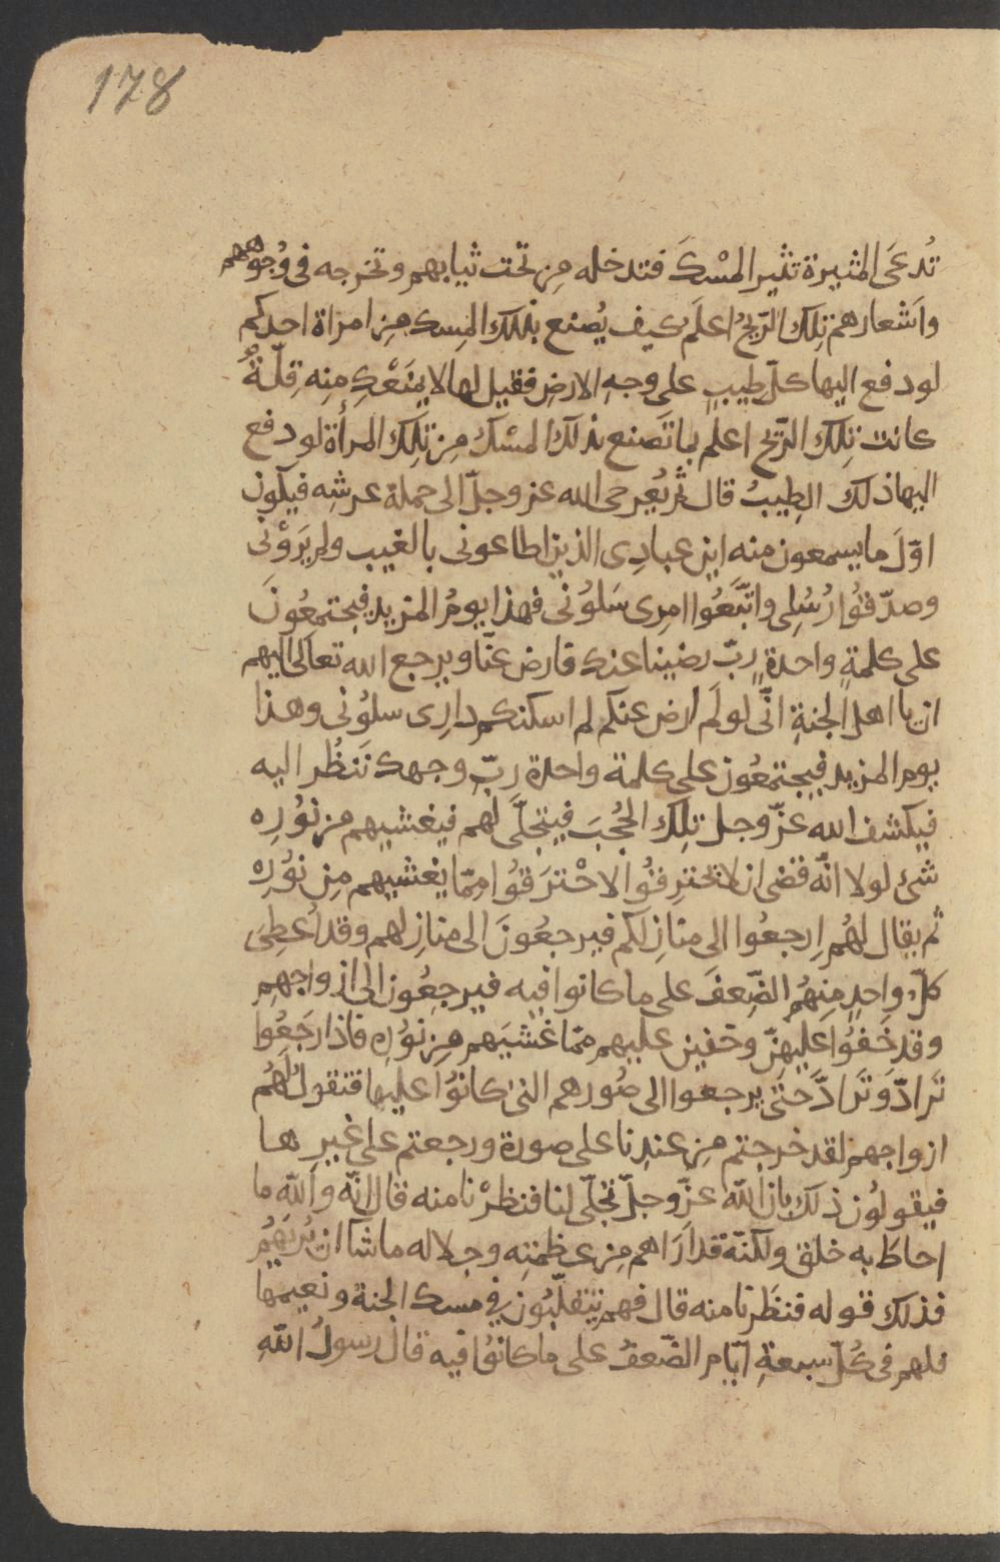 178
تُدعَى المثيرة تثير المسْكَ فتدخله مِن تحت ثيابهم وتخرجه فى وُجُوههم
واَشعارهم تِلك الرّيحُ اعلَم كيف يُصنع بذلك المِسك مِن امراة احدكم
لو دفع اليها كلّ طِيبٍ على وجهِ الارضِ فقيل لها لا يمنَعْكِ مِنه قِلّةٌ
كانت تِلك الرّيح اعلَم بما تَصنع بذلك المسْك مِن تِلك المرأة لو دفع
اليها ذلك الطِيبُ قال ثم يُوحى الله عز وجلّ الى حملة عرشِه فيكون
اوّلَ ما يسمعون منه اين عبادِى الذين اطاعونى بالغيب ولم يَرَوْنى
وصدّقوُا رُسُلِى واتّبَعُوا امرِى سَلوُنى فهذا يومُ المزيد فيجتمعُونَ
على كلمةٍ واحدةٍ ربّ رضينا عنك فارض عنّا ويرجع الله تعالى اليهم
ان يا اهل الجنةِ انّى لو لَم ارض عنكم لم اسكنكم دارِى سلوُنى وهذا
يوم المزيد فيجتمعُون على كلمة واحدة ربّ وجهك نَنظُر اليه
فيكشف الله عزّ وجل تِلك الحُجُبَ فيتجلَّى لهم فيغشيهم من نوُرِه
شئ لولا انّه قضى ان لا يحترِقوُا لاحْترَقوُا مِمّا يغشيهم مِن نوُرِه
ثم يقال لهُم اِرجعُوا الى منازِلكم فيرجعُونَ الى منازِلهم وقد اُعطِىَ
كلّ واحدٍ مِنهُم الضِّعفَ على ما كانوا فيه فيرجِعُون الى ازواجهِم
وقد خَفوُا عليهنّ وخفين عليهم ممّا غَشيَهم مِن نوُرِه فاذا رَجَعُوا
تَرادّ وَتَرادَّ حتّى يرجعوا الى صُورهم التى كانوُا عليها فتقول لهُم
ازواجهم لقد خرجتم مِن عندِنا على صورة ورجعتم على غيرِها
فيقولوُن ذلك بان الله عزّ وجلّ تجلّى لنا فنظرْنا منه قال انّه والله ما
احاطَ به خلق ولكنّه قد ارَاهم مِن عظمتِه وجلاله ما شآ ان يُرِيَهُم
فذلك قوله فنظَرنا منه قال فهم يتقلّبُون فى مسك الجنة ونعيمها
فلهم فى كُلّ سبعةِ ايّام الضّعفُ على ما كانوُا فيه قال رسولُ اللهِ